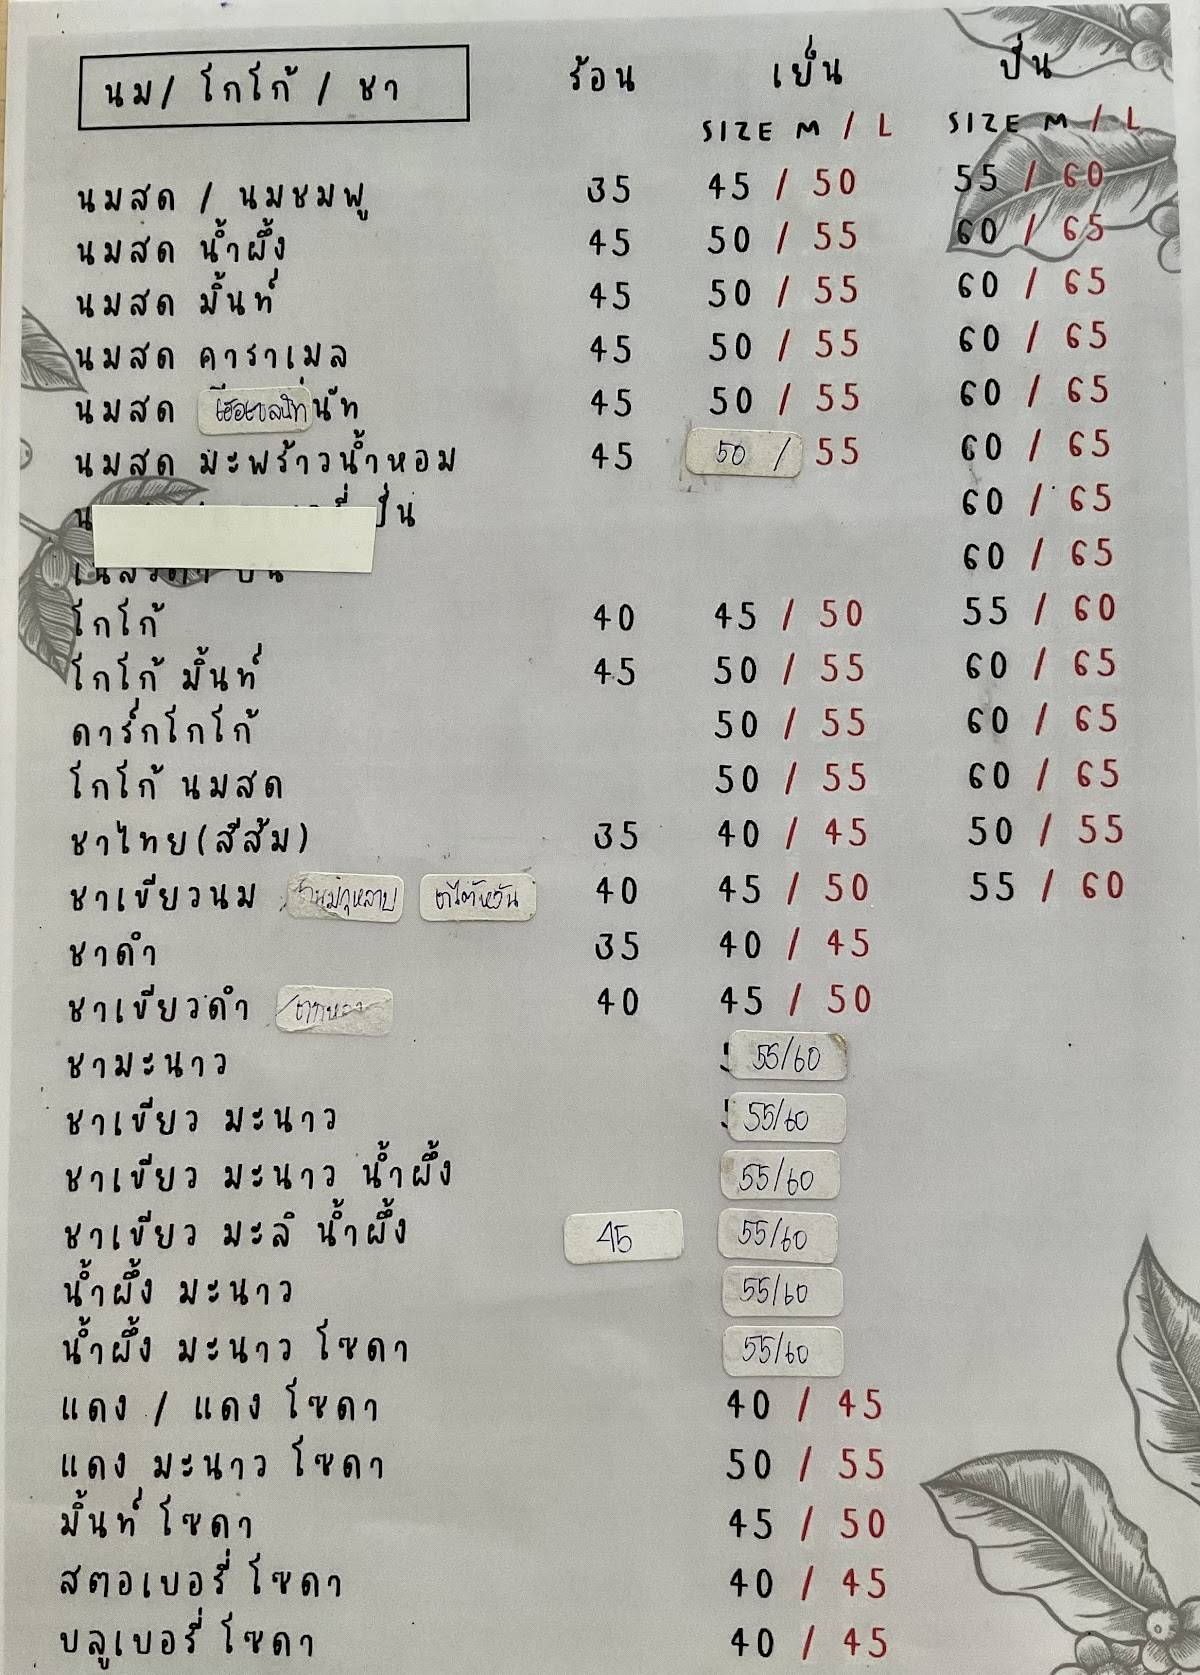 นม/ โกโก้ / ชา ร้อน เย็น ปั่น
SIZE M / L SIZE M / L
นมสด / นมชมพู 35 45 / 50 55 / 60
นมสด น้ำผึ้ง 45 50 / 55 60 / 65
นมสด มิ้นท์ 45 50 / 55 60 / 65
นมสด คาราเมล 45 50 / 55 60 / 65
นมสด นัท 45 50 / 55 60 / 65
นมสด มะพร้าวน้ำหอม 45 50 / 55 60 / 65
ปั่น 60 / 65
60 / 65
โกโก้ 40 45 / 50 55 / 60
โกโก้ มิ้นท์ 45 50 / 55 60 / 65
ดาร์กโกโก้ 50 / 55 60 / 65
โกโก้ นมสด 50 / 55 60 / 65
ชาไทย(สีส้ม) 35 40 / 45 50 / 55
ชาเขียวนม 40 45 / 50 55 / 60
ชาดำ 35 40 / 45
ชาเขียวดำ 40 45 / 50
ชามะนาว 55/60
ชาเขียว มะนาว 55/60
ชาเขียว มะนาว น้ำผึ้ง 55/60
ชาเขียว มะลิ น้ำผึ้ง 45 55/60
น้ำผึ้ง มะนาว 55/60
น้ำผึ้ง มะนาว โซดา 55/60
แดง / แดง โซดา 40 / 45
แดง มะนาว โซดา 50 / 55
มิ้นท์ โซดา 45 / 50
สตอเบอรี่ โซดา 40 / 45
บลูเบอรี่ โซดา 40 / 45